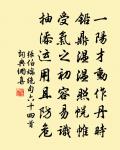 一陽才動作丹時
鉛鼎溫溫照幌帷
受氣之初容易識
抽添運用且防危
張伯端絕句六十四首
詞典網喜